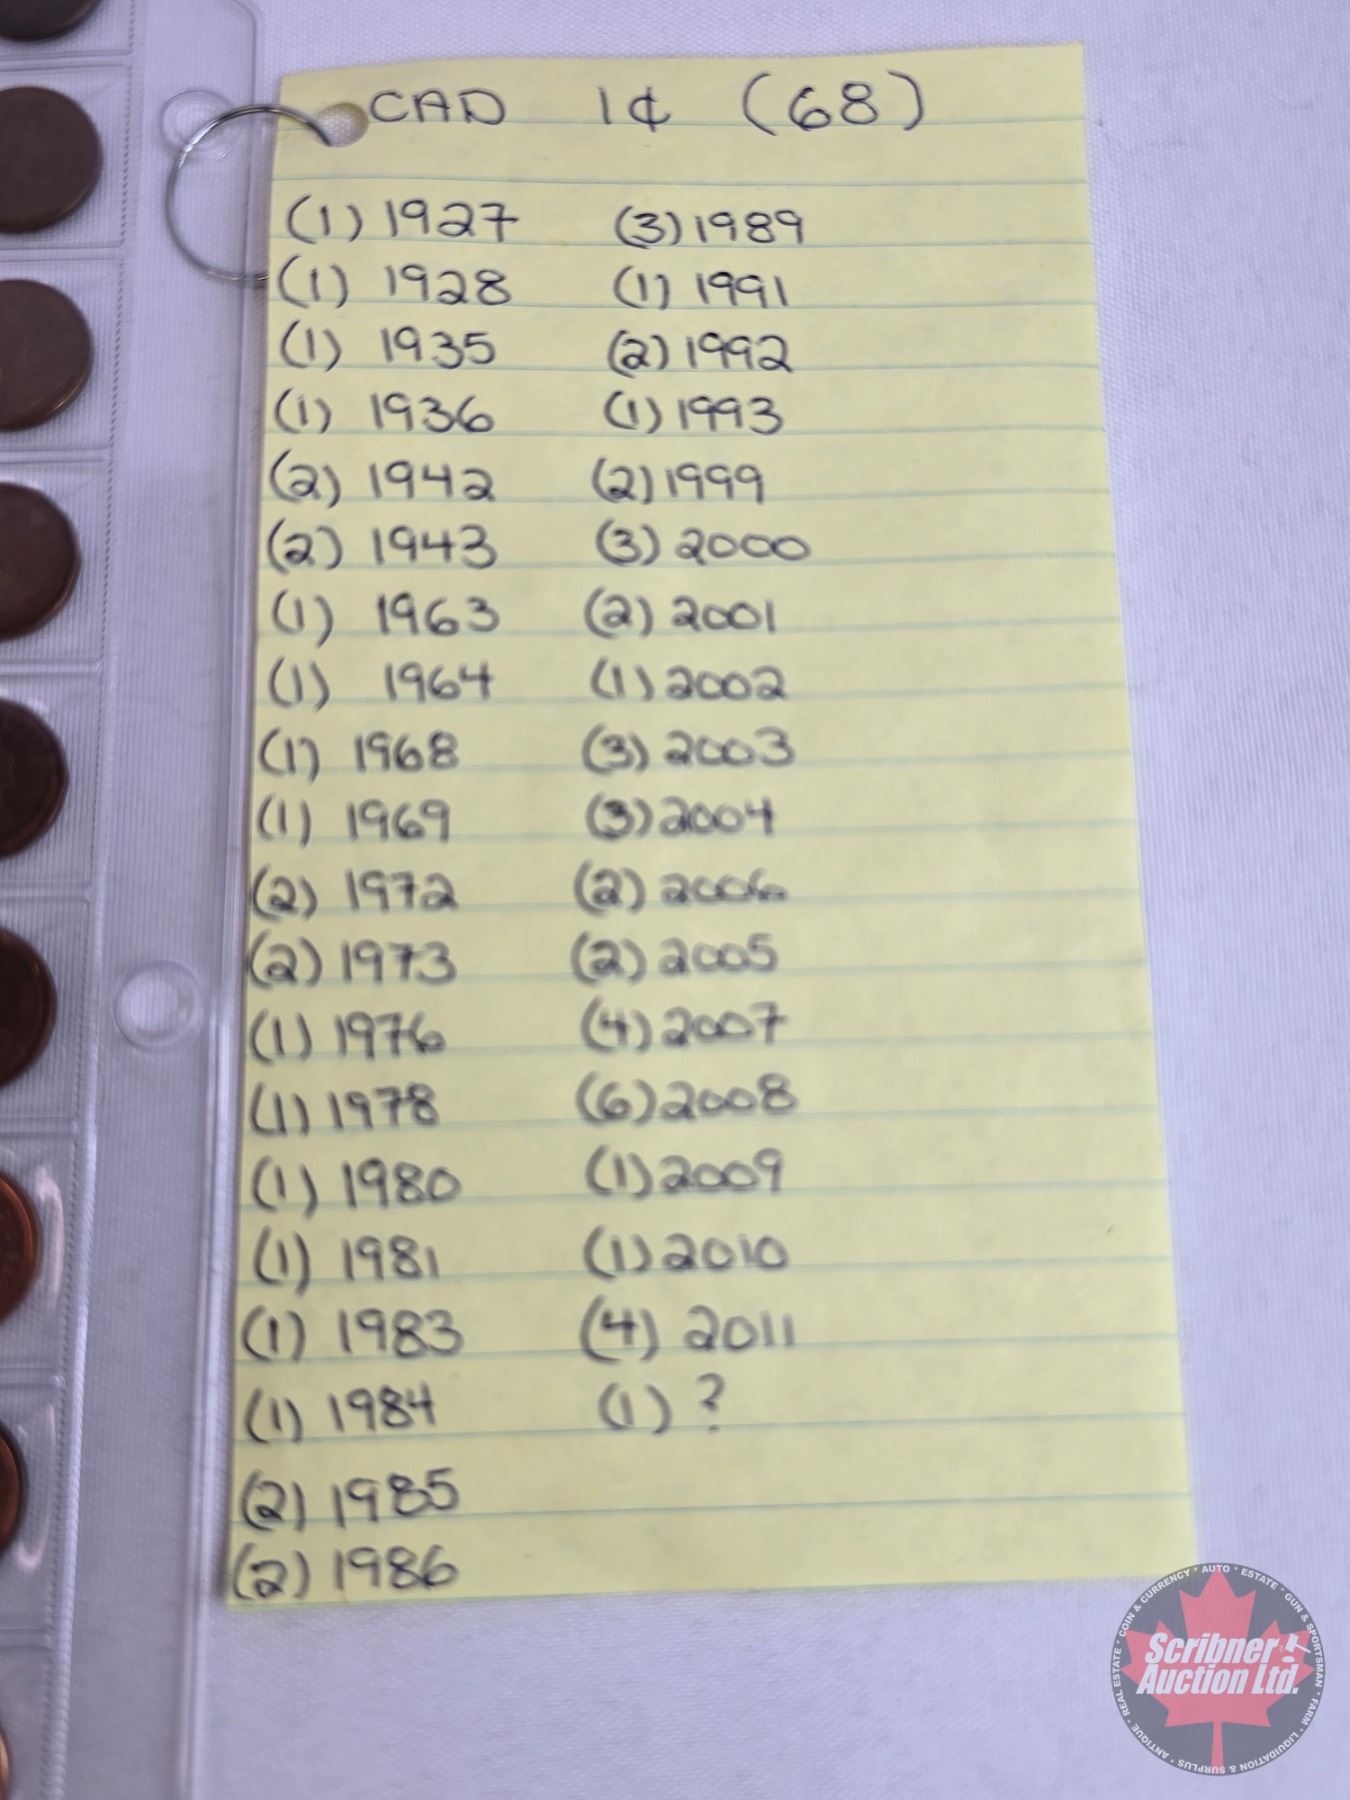 CAD 1¢ (68)
(1) 1927
(1) 1928
(1) 1935
(1) 1936
(2) 1942
(2) 1943
(1) 1963
(1) 1964
(1) 1968
(1) 1969
(2) 1972
(2) 1973
(1) 1976
(1) 1978
(1) 1980
(1) 1981
(1) 1983
(1) 1984
(2) 1985
(2) 1986
(3) 1989
(1) 1991
(2) 1992
(1) 1993
(2) 1999
(3) 2000
(2) 2001
(1) 2002
(3) 2003
(3) 2004
(2) 2006
(2) 2005
(4) 2007
(6) 2008
(1) 2009
(1) 2010
(4) 2011
(1) ?
Scribner
Auction Ltd.
COIN & CURRENCY • AUTO • ESTATE • GUN & SPORTSMAN • FARM • LIQUIDATION & SURPLUS • ANTIQUE • REAL ESTATE •